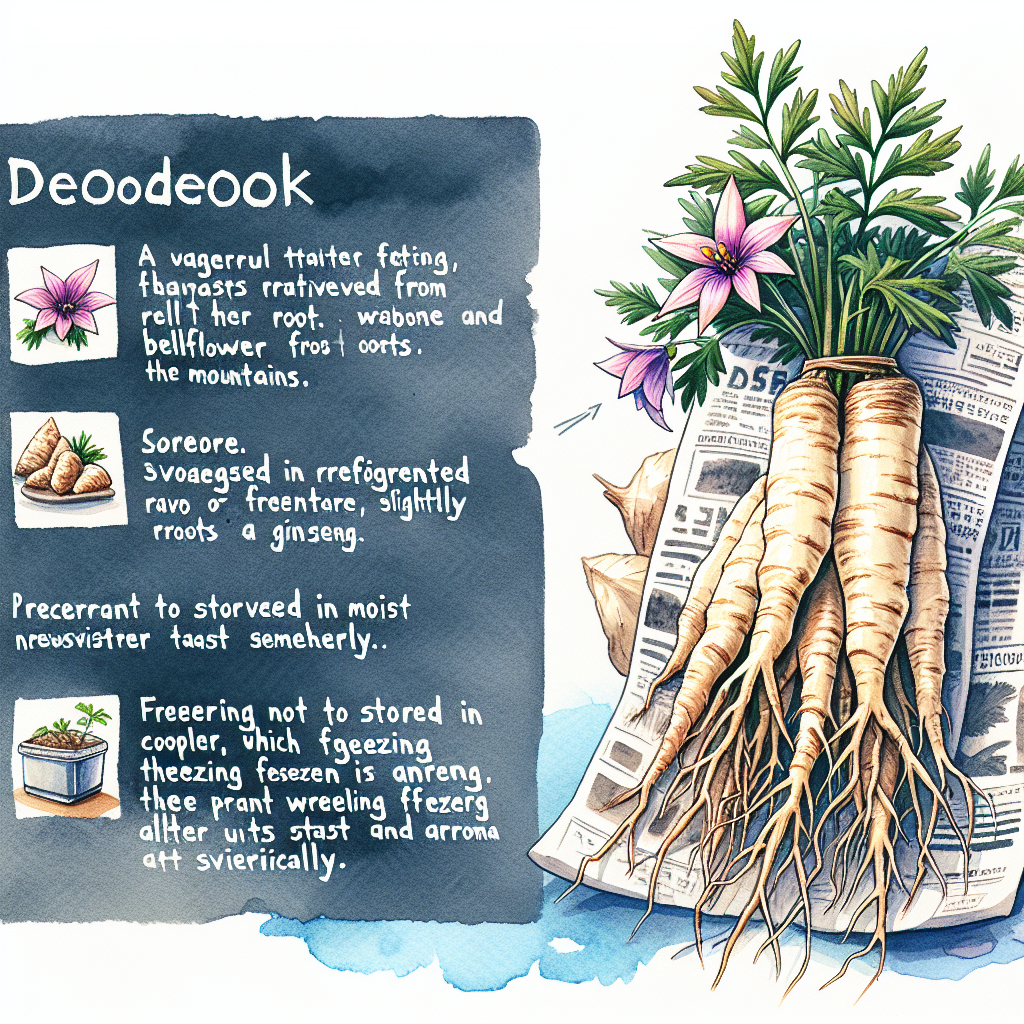 Deoodeook
A vagerrul ttaiter fcting,
fbaŋasrs rrativeved from
rell t her root. wabone and
bellflower fros t oorts.
the mountains.
Soreore.
svoaegsed in rrefógrented
ravo or freentare, slightly
rroots a ginseng.
Precerrant to storveed in moist
nrewsvistrer taast semeherly..
Freeering not to stored in
coopler, which fgeezing
theezing fesezen is anreng.
thee prant wreeling ffezerg
allter uits stast and arroma
att svieriically.
DSF